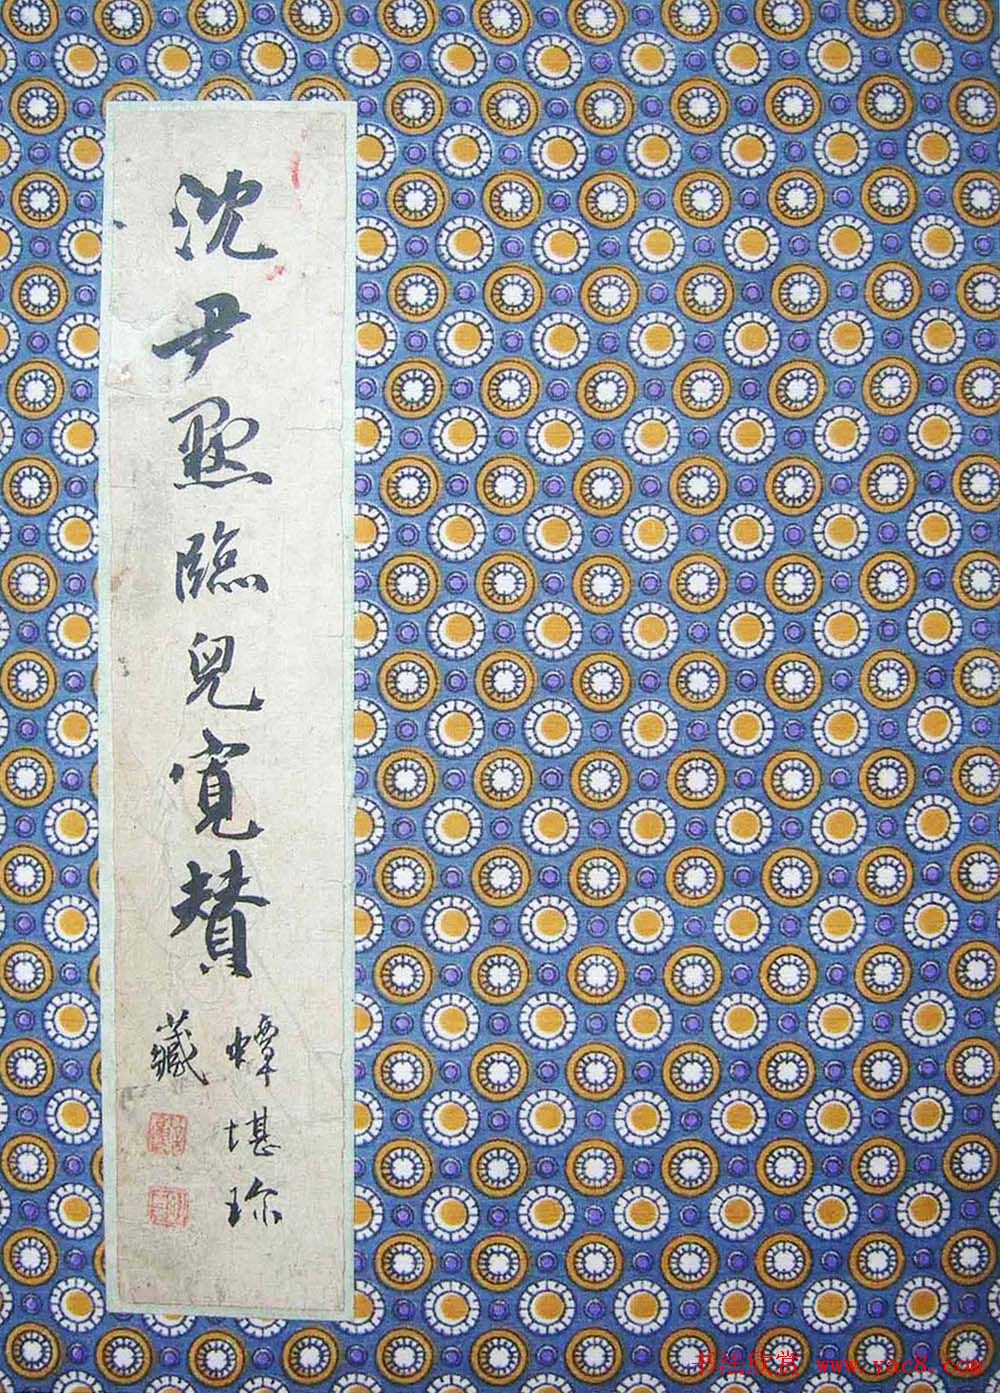 沈尹默臨兒寬贊
蟫堪珎
藏
书法欣赏 www.yac8.com